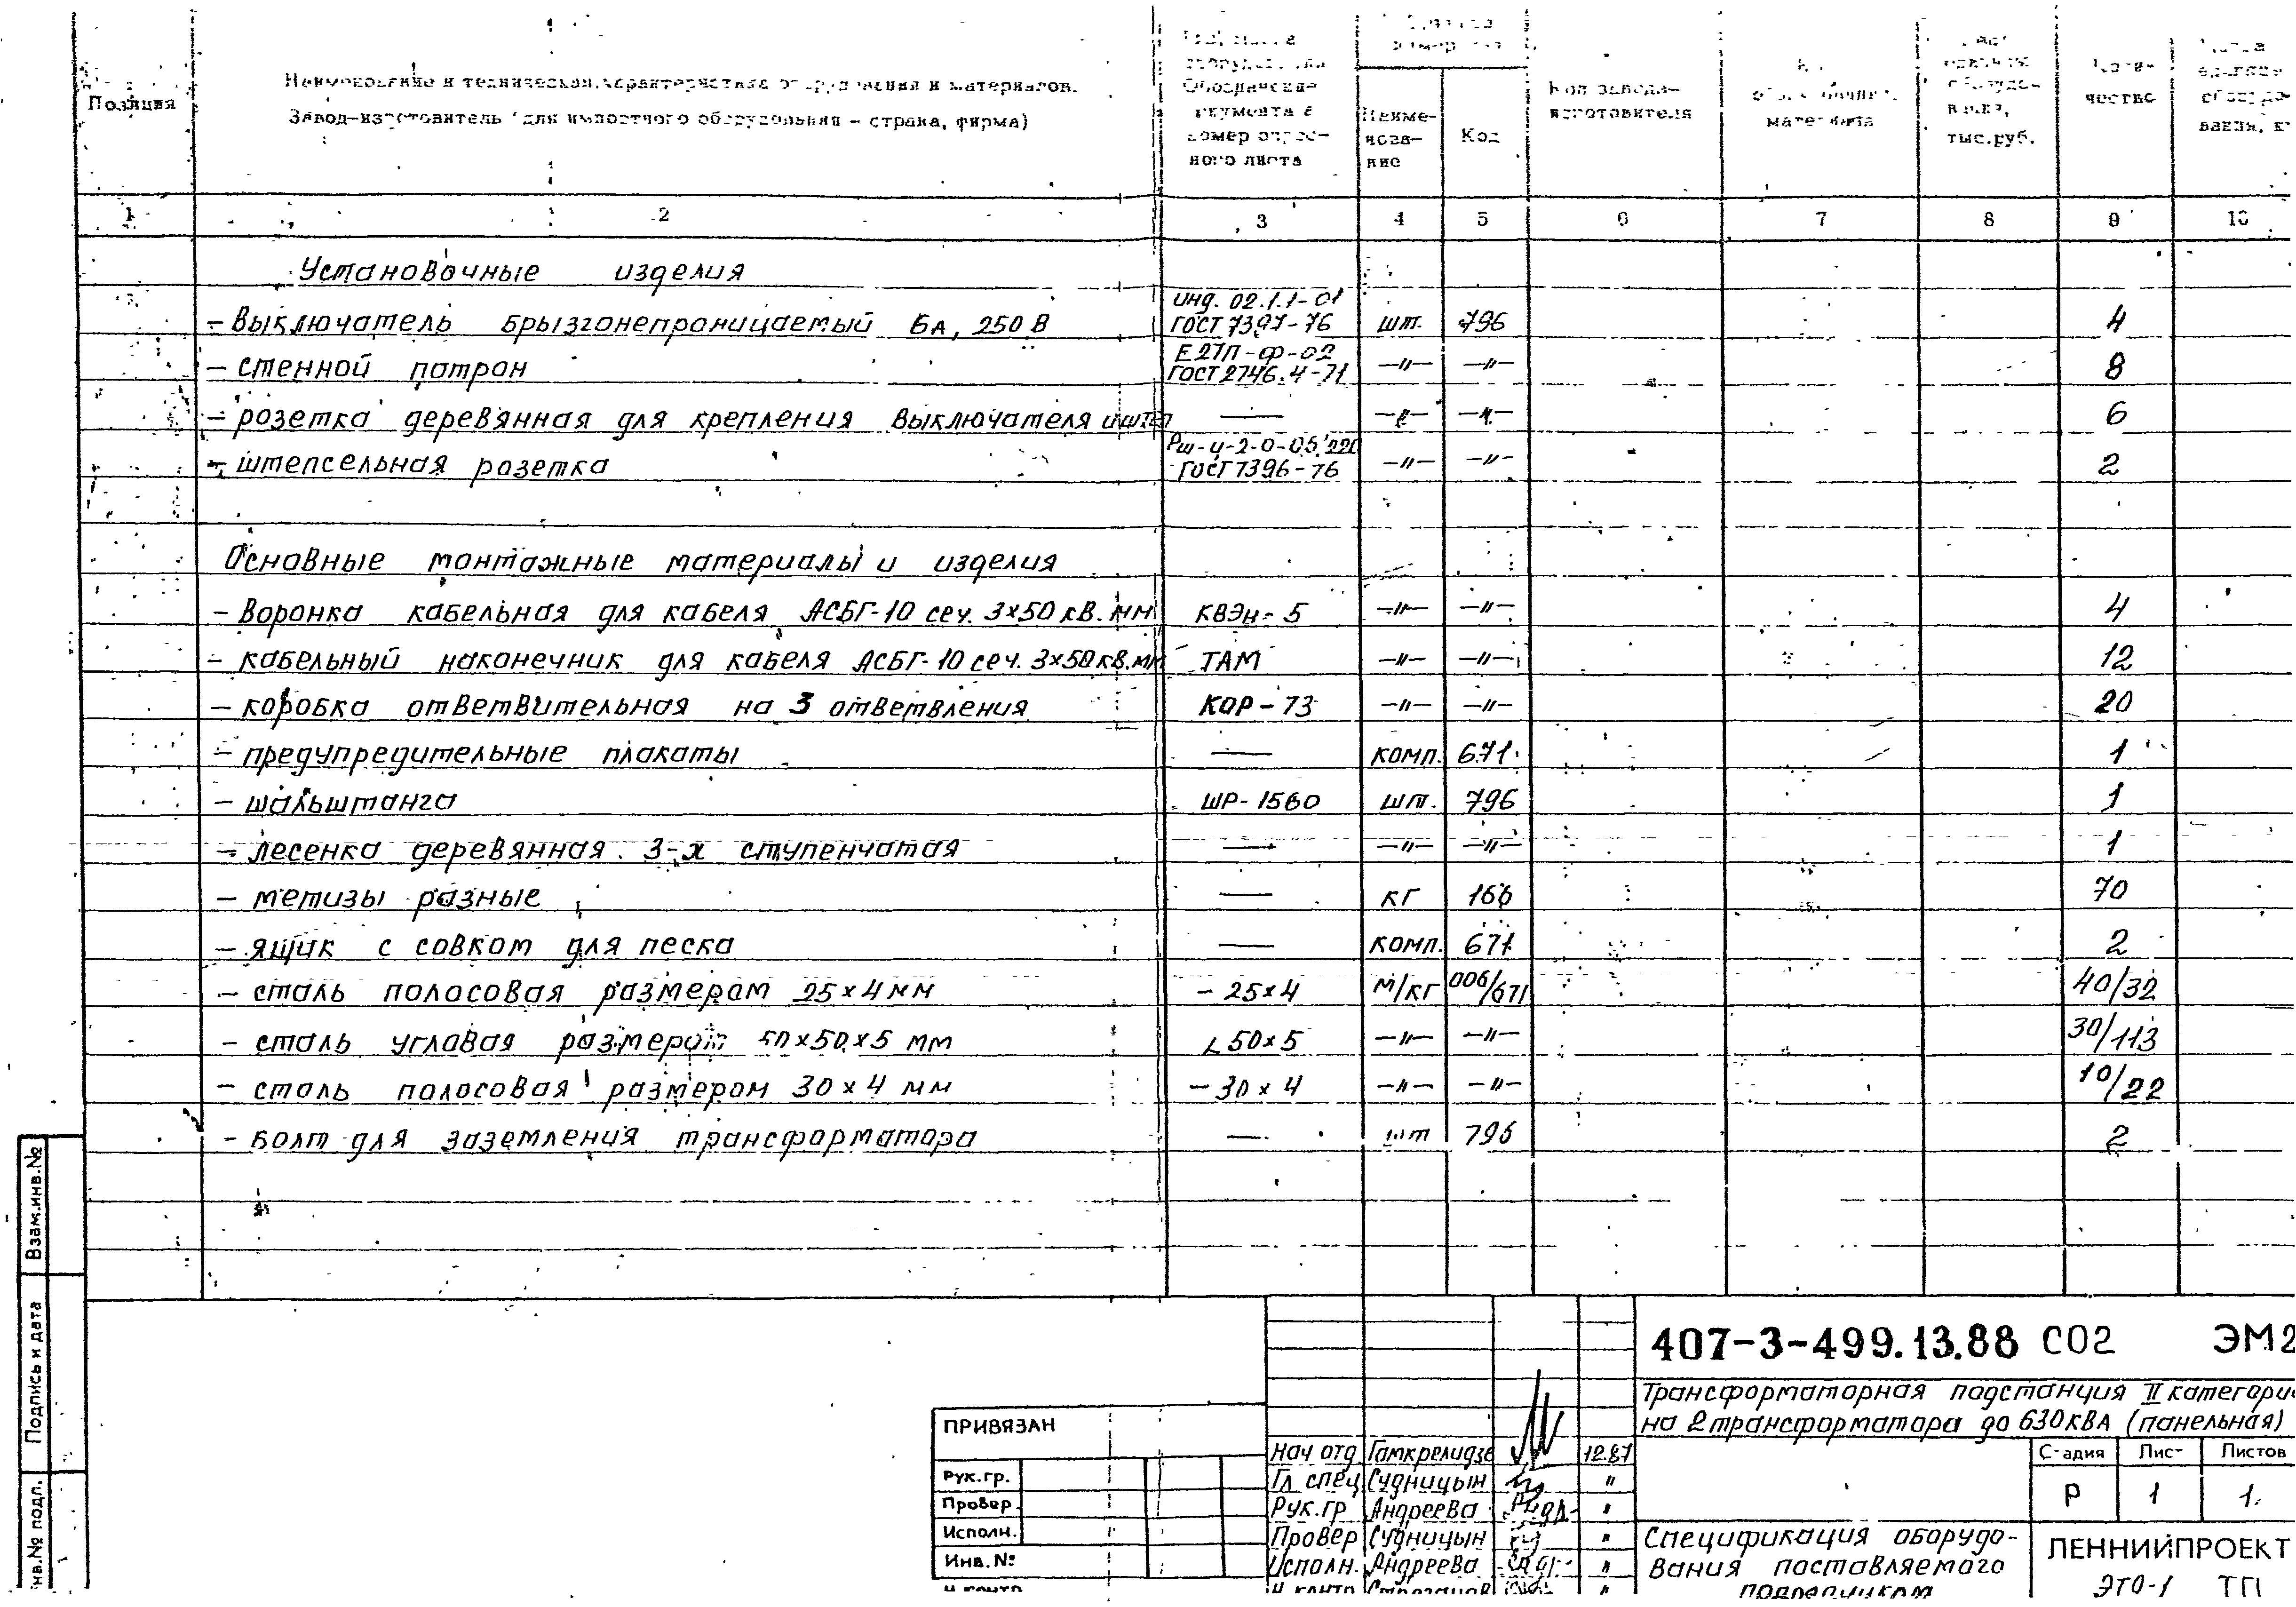 Позиция
Наименование и техническая характеристика оборудования и материалов.
Завод-изготовитель (для импортного оборудования – страна, фирма)
оборудования
Обозначение
документа и
номер опрос-
ного листа
Наиме-
нова-
ние
Код
Код завода-
изготовителя
материала
тыс.руб.
чество
1 2 3 4 5 6 7 8 9 10
Установочные изделия
инд. 02.1.1-01
- Выключатель брызгонепроницаемый 6А, 250 В ГОСТ 7397-76 шт. 796 4
Е27П-Ф-02
- стенной патрон ГОСТ 2746.4-71 —"— —"— 8
- розетка деревянная для крепления выключателя и штеп — —"— —"— 6
РШ-Ц-2-0-05 220
- штепсельная розетка ГОСТ 7396-76 —"— —"— 2
Основные монтажные материалы и изделия
- Воронка кабельная для кабеля АСБГ-10 сеч. 3х50 кв. мм КВЭн-5 —"— —"— 4
- кабельный наконечник для кабеля АСБГ-10 сеч. 3х50 кв.мм ТАМ —"— —"— 12
- коробка ответвительная на 3 ответвления КОР-73 —"— —"— 20
- предупредительные плакаты — комп. 671 1
- шальштанга ШР-1560 шт. 796 1
- лесенка деревянная 3-х ступенчатая — —"— —"— 1
- метизы разные — кг 166 70
- ящик с совком для песка — комп. 671 2
- сталь полосовая размером 25х4 мм - 25х4 м/кг 006/671 40/32
- сталь угловая размером 50х50х5 мм ∟50х5 —"— —"— 30/113
- сталь полосовая размером 30х4 мм - 30х4 —"— —"— 10/22
- болт для заземления трансформатора — шт 796 2
Взам.инв.№
Подпись и дата
Инв.№ подл.
407-3-499.13.88 СО2 ЭМ2
Трансформаторная подстанция II категории
на 2 трансформатора до 630 кВА (панельная)
ПРИВЯЗАН
Рук.гр.
Провер.
Исполн.
Инв. №
Н.контр
Нач отд Гамкрелидзе 12.87
Гл спец Судницын "
Рук.гр Андреева "
Провер Судницын "
Исполн. Андреева "
Н.контр "
Стадия Лист Листов
Р 1 1
Спецификация оборудо-
вания поставляемого
подрядчиком
ЛЕННИИПРОЕКТ
ЭТО-1 ТП